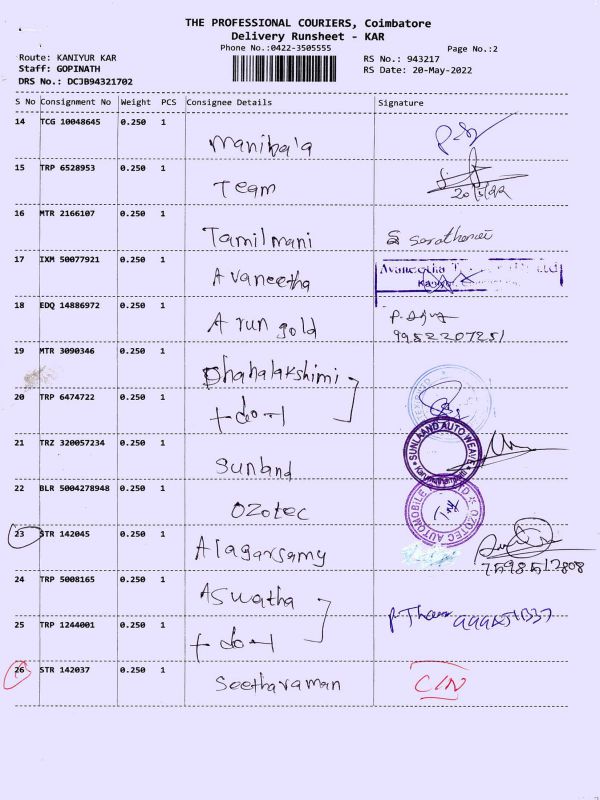 THE PROFESSIONAL COURIERS, Coimbatore
Delivery Runsheet - KAR
Phone No.:0422-3505555
Page No.:2
Route: KANIYUR KAR
RS No.: 943217
Staff: GOPINATH
RS Date: 20-May-2022
DRS No.: DCJB94321702
S No Consignment No Weight PCS Consignee Details Signature
14 TCG 10048645 0.250 1
Manibala
15 TRP 6528953 0.250 1
Team
20/5/22
16 MTR 2166107 0.250 1
Tamilmani
17 IXM 50077921 0.250 1
Avaneetha
Avaneetha
18 EDQ 14886972 0.250 1
Arun gold
9952207251
19 MTR 3090346 0.250 1
Dhahalakshimi
20 TRP 6474722 0.250 1
+do-1
21 TRZ 320057234 0.250 1
SUNLAAND AUTO WEAVE
Sunland
22 BLR 5004278948 0.250 1
Ozotec
OZOTEC AUTOMOBILE
23 STR 142045 0.250 1
Alagarsamy
7598512808
24 TRP 5008165 0.250 1
Aswatha
25 TRP 1244001 0.250 1
+do-1
26 STR 142037 0.250 1
Seetharaman
C/N